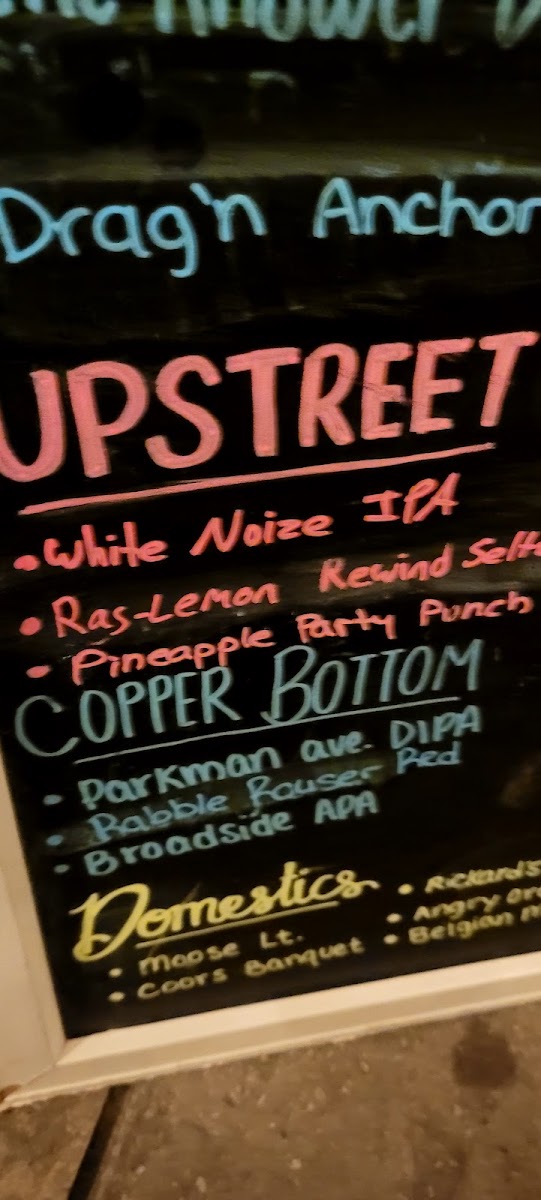 Drag'n Anchor
UPSTREET
• White Noize IPA
• Ras-Lemon Rewind
• Pineapple Party Punch
COPPER BOTTOM
• Parkman ave. DIPA
• Rabble Rouser Red
• Broadside APA
Domestics
• Moose Lt.
• Coors Banquet
• Rickard's
• Angry
• Belgian